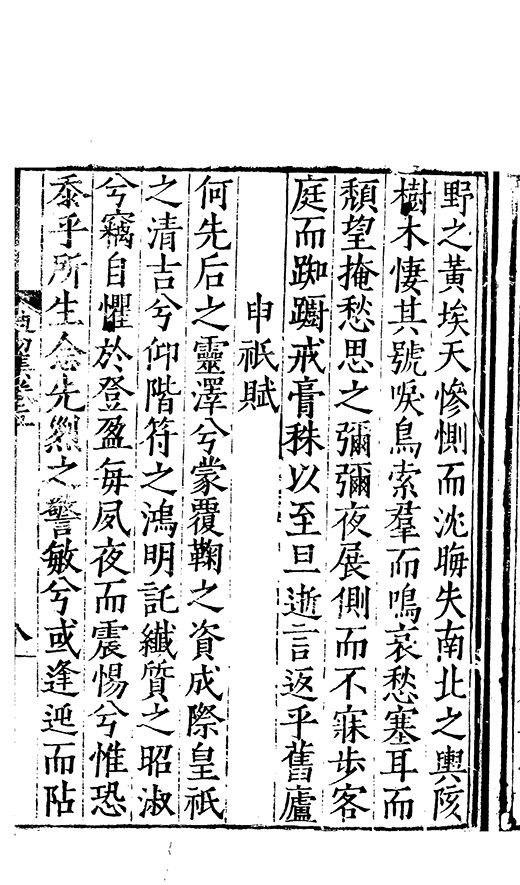 野之黃埃天慘惻而沈晦失南北之輿陔
樹木悽其號唳鳥索羣而鳴哀愁塞耳而
頹望掩愁思之彌彌夜展側而不寐步客
庭而踟躕戒膏秣以至旦逝言返乎舊廬
申祇賦
何先后之靈澤兮蒙覆鞠之資成際皇祇
之清吉兮仰階符之鴻明託纖質之昭淑
兮竊自懼於登盈每夙夜而震惕兮惟恐
忝乎所生念先烈之警敏兮或逢迎而阽
八